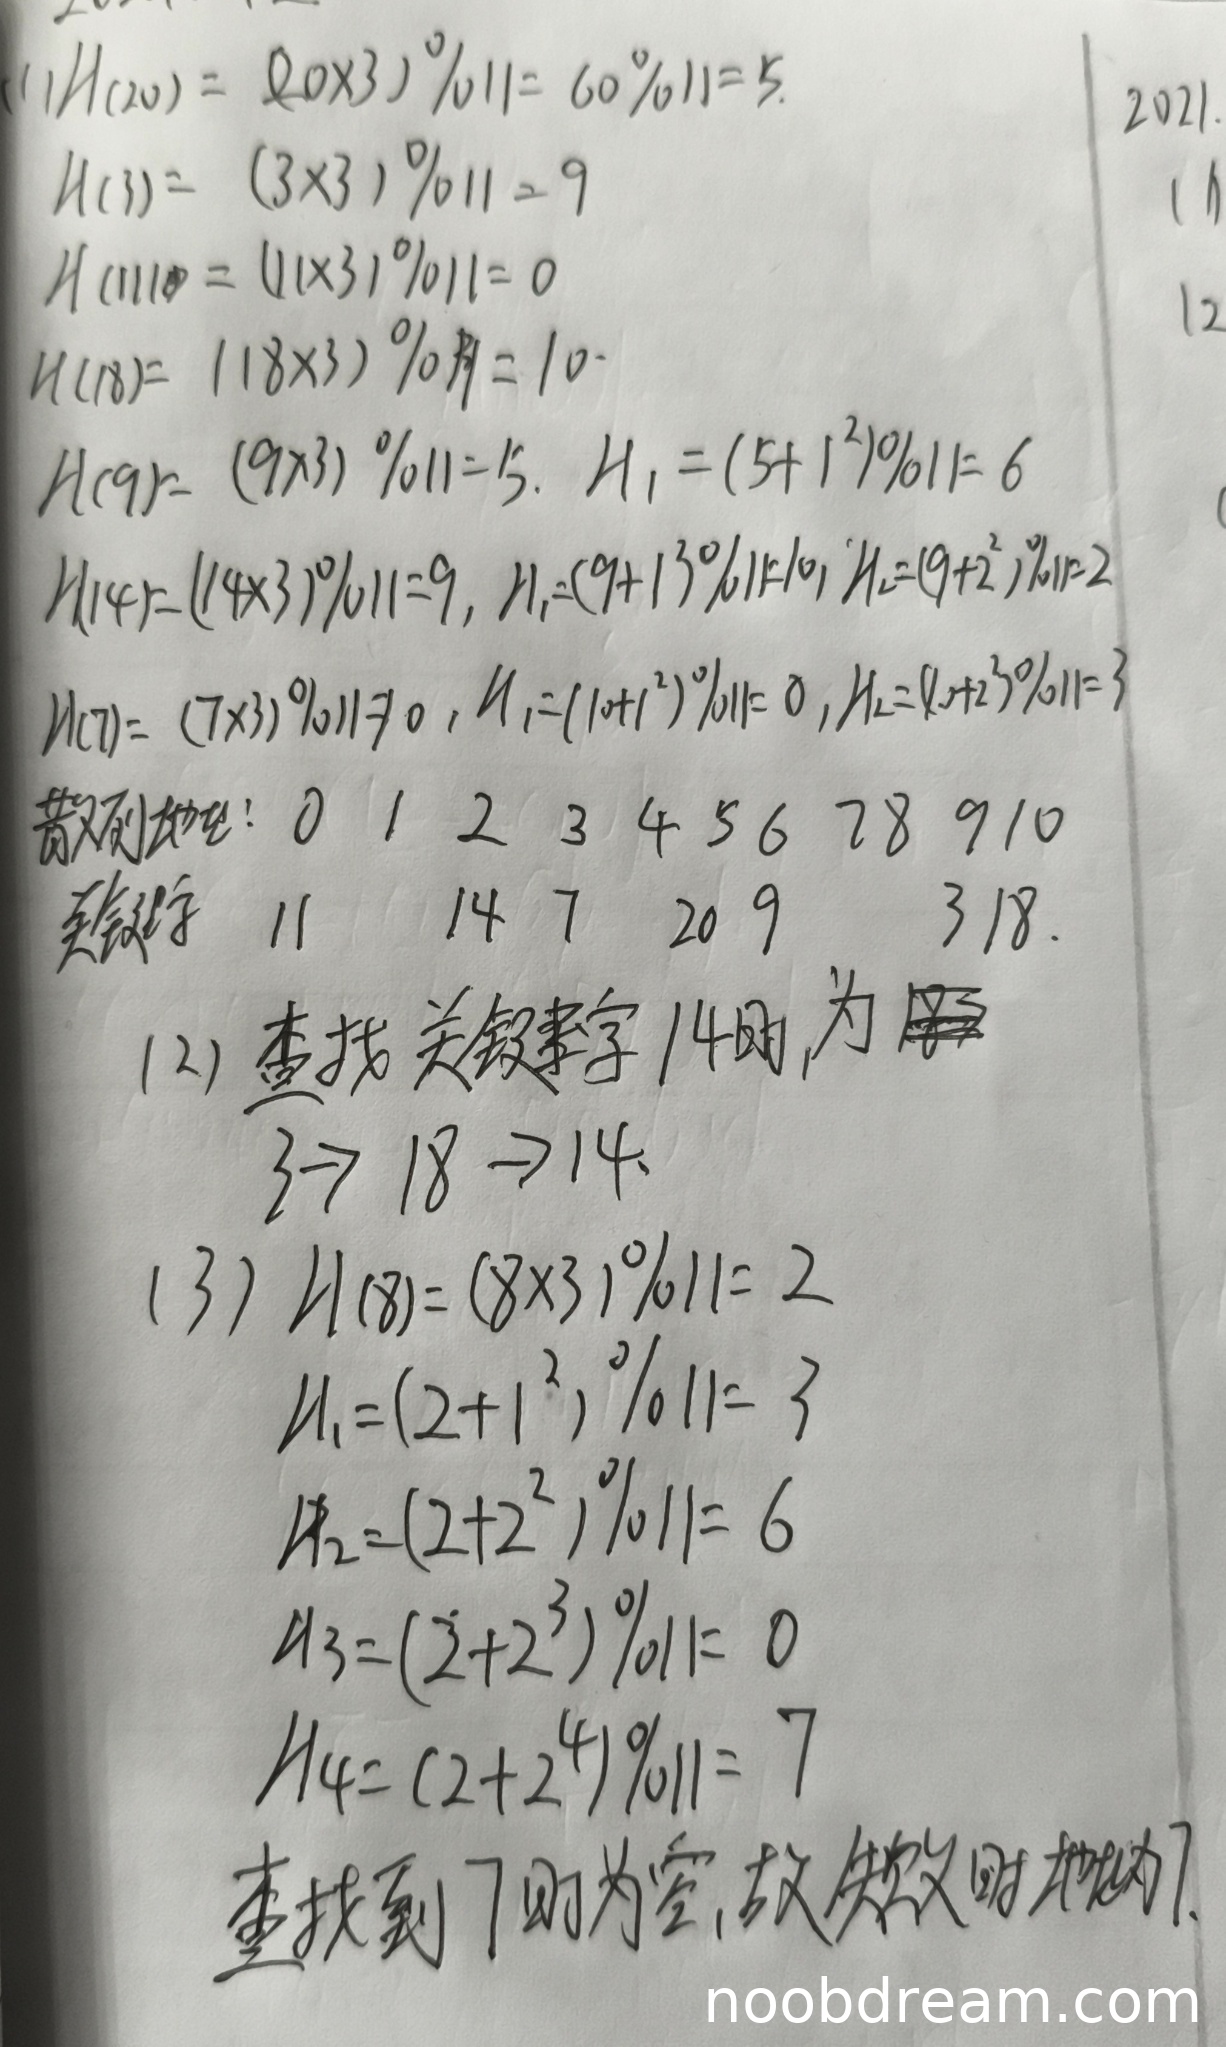 (1) H(20) = (20×3)%11 = 60%11 = 5.
2021.
H(3) = (3×3)%11 = 9
(1
H(11) = (11×3)%11 = 0
(2
H(18) = (18×3)%11 = 10.
H(9) = (9×3)%11 = 5. H₁ = (5+1²)%11 = 6
H(14) = (14×3)%11 = 9, H₁ = (9+1²)%11 = 10, H₂ = (9+2²)%11 = 2
H(7) = (7×3)%11 = 10, H₁ = (10+1²)%11 = 0, H₂ = (10+2²)%11 = 3
散列地址: 0 1 2 3 4 5 6 7 8 9 10
关键字 11 14 7 20 9 3 18.
(2) 查找关键字14时,为
3→ 18 →14.
(3) H(8) = (8×3)%11 = 2
H₁ = (2+1²)%11 = 3
H₂ = (2+2²)%11 = 6
H3 = (2+2³)%11 = 0
H4 = (2+2⁴)%11 = 7
查找到7时为空,故失败时地址为7.
noobdream.com